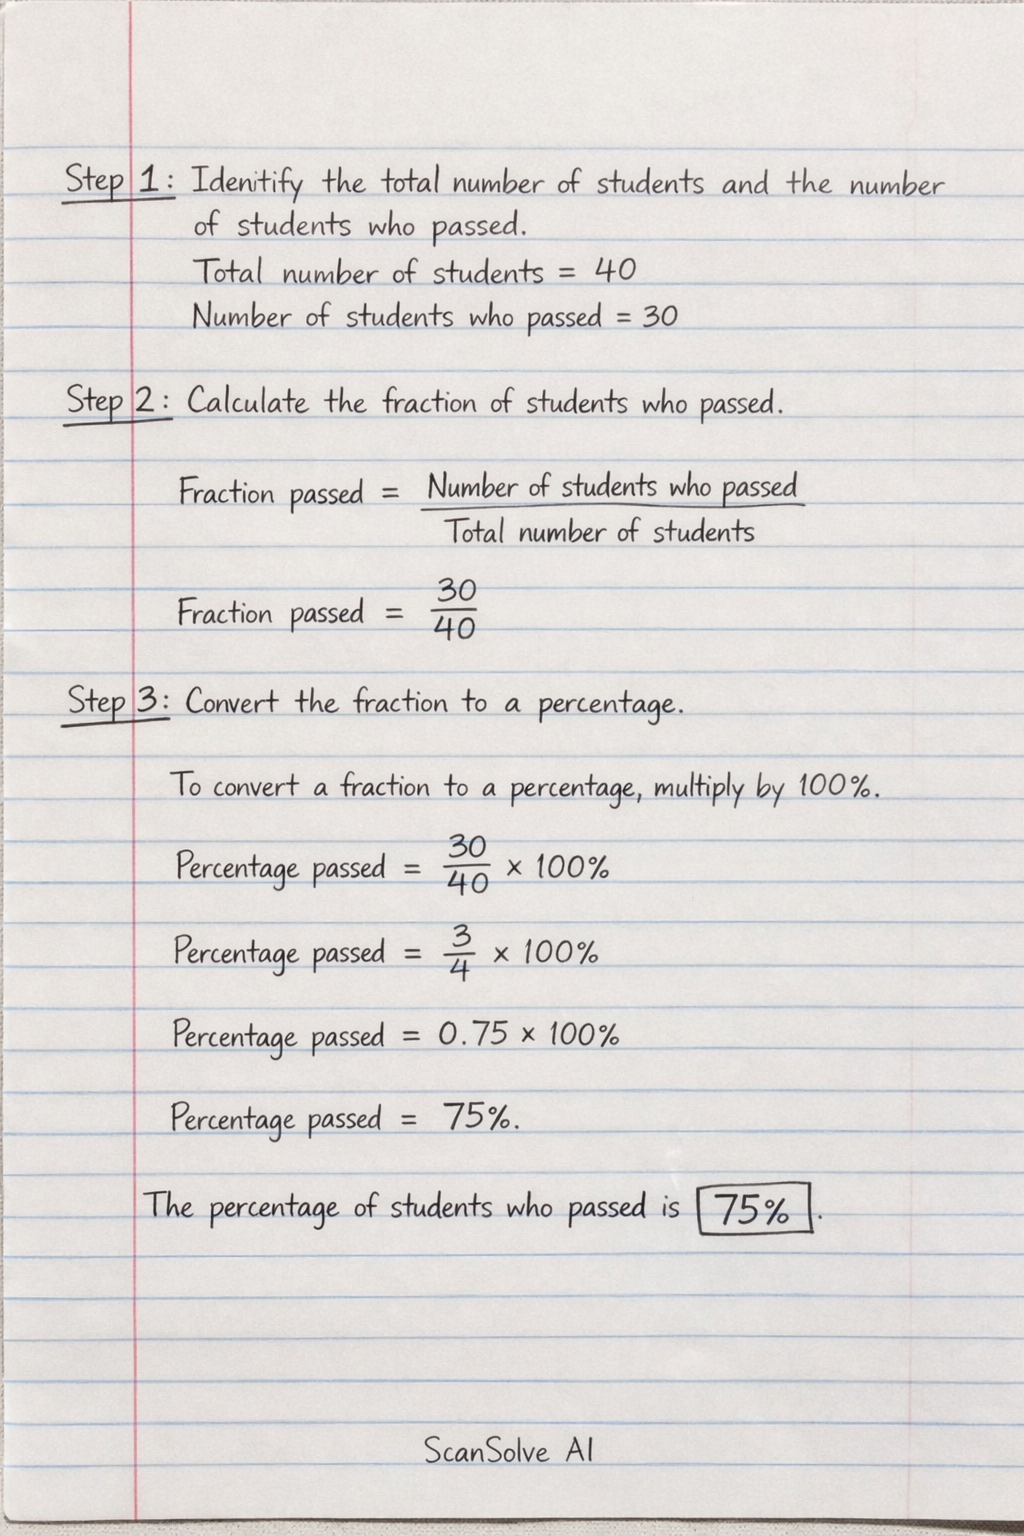 Step 1: Identify the total number of students and the number
of students who passed.
Total number of students = 40
Number of students who passed = 30
Step 2: Calculate the fraction of students who passed.
Fraction passed = Number of students who passed
Total number of students
Fraction passed = 30/40
Step 3: Convert the fraction to a percentage.
To convert a fraction to a percentage, multiply by 100%.
Percentage passed = 30/40 × 100%
Percentage passed = 3/4 × 100%
Percentage passed = 0.75 × 100%
Percentage passed = 75%.
The percentage of students who passed is 75%.
ScanSolve AI